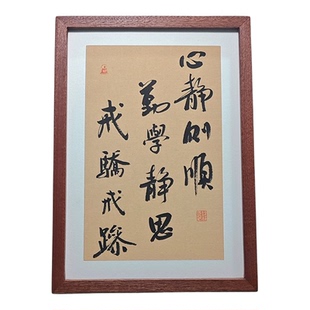 心静则順
勤學静思
戒驕戒躁